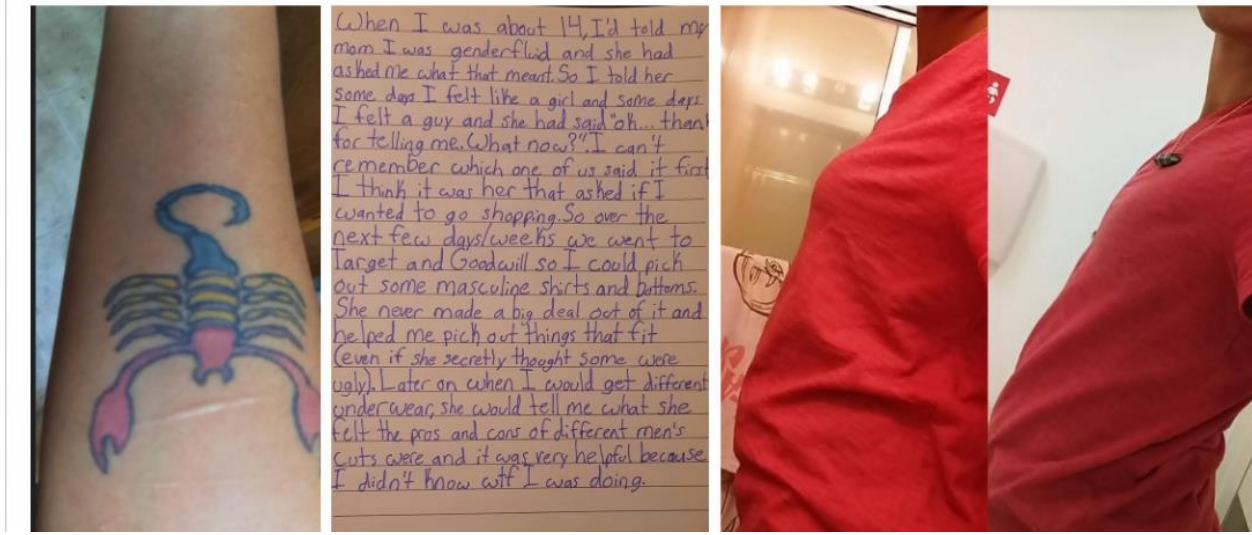 When I was about 14, I'd told my
mom I was genderfluid and she had
asked me what that meant. So I told her
some days I felt like a girl and some days
I felt a guy and she had said "oh... thank
for telling me. What now?". I can't
remember which one of us said it first
I think it was her that asked if I
wanted to go shopping. So over the
next few days/weeks we went to
Target and Goodwill so I could pick
out some masculine shirts and bottoms.
She never made a big deal out of it and
helped me pick out things that fit
(even if she secretly thought some were
ugly). Later on when I would get different
underwear, she would tell me what she
felt the pros and cons of different men's
cuts were and it was very helpful because
I didn't know wtf I was doing.